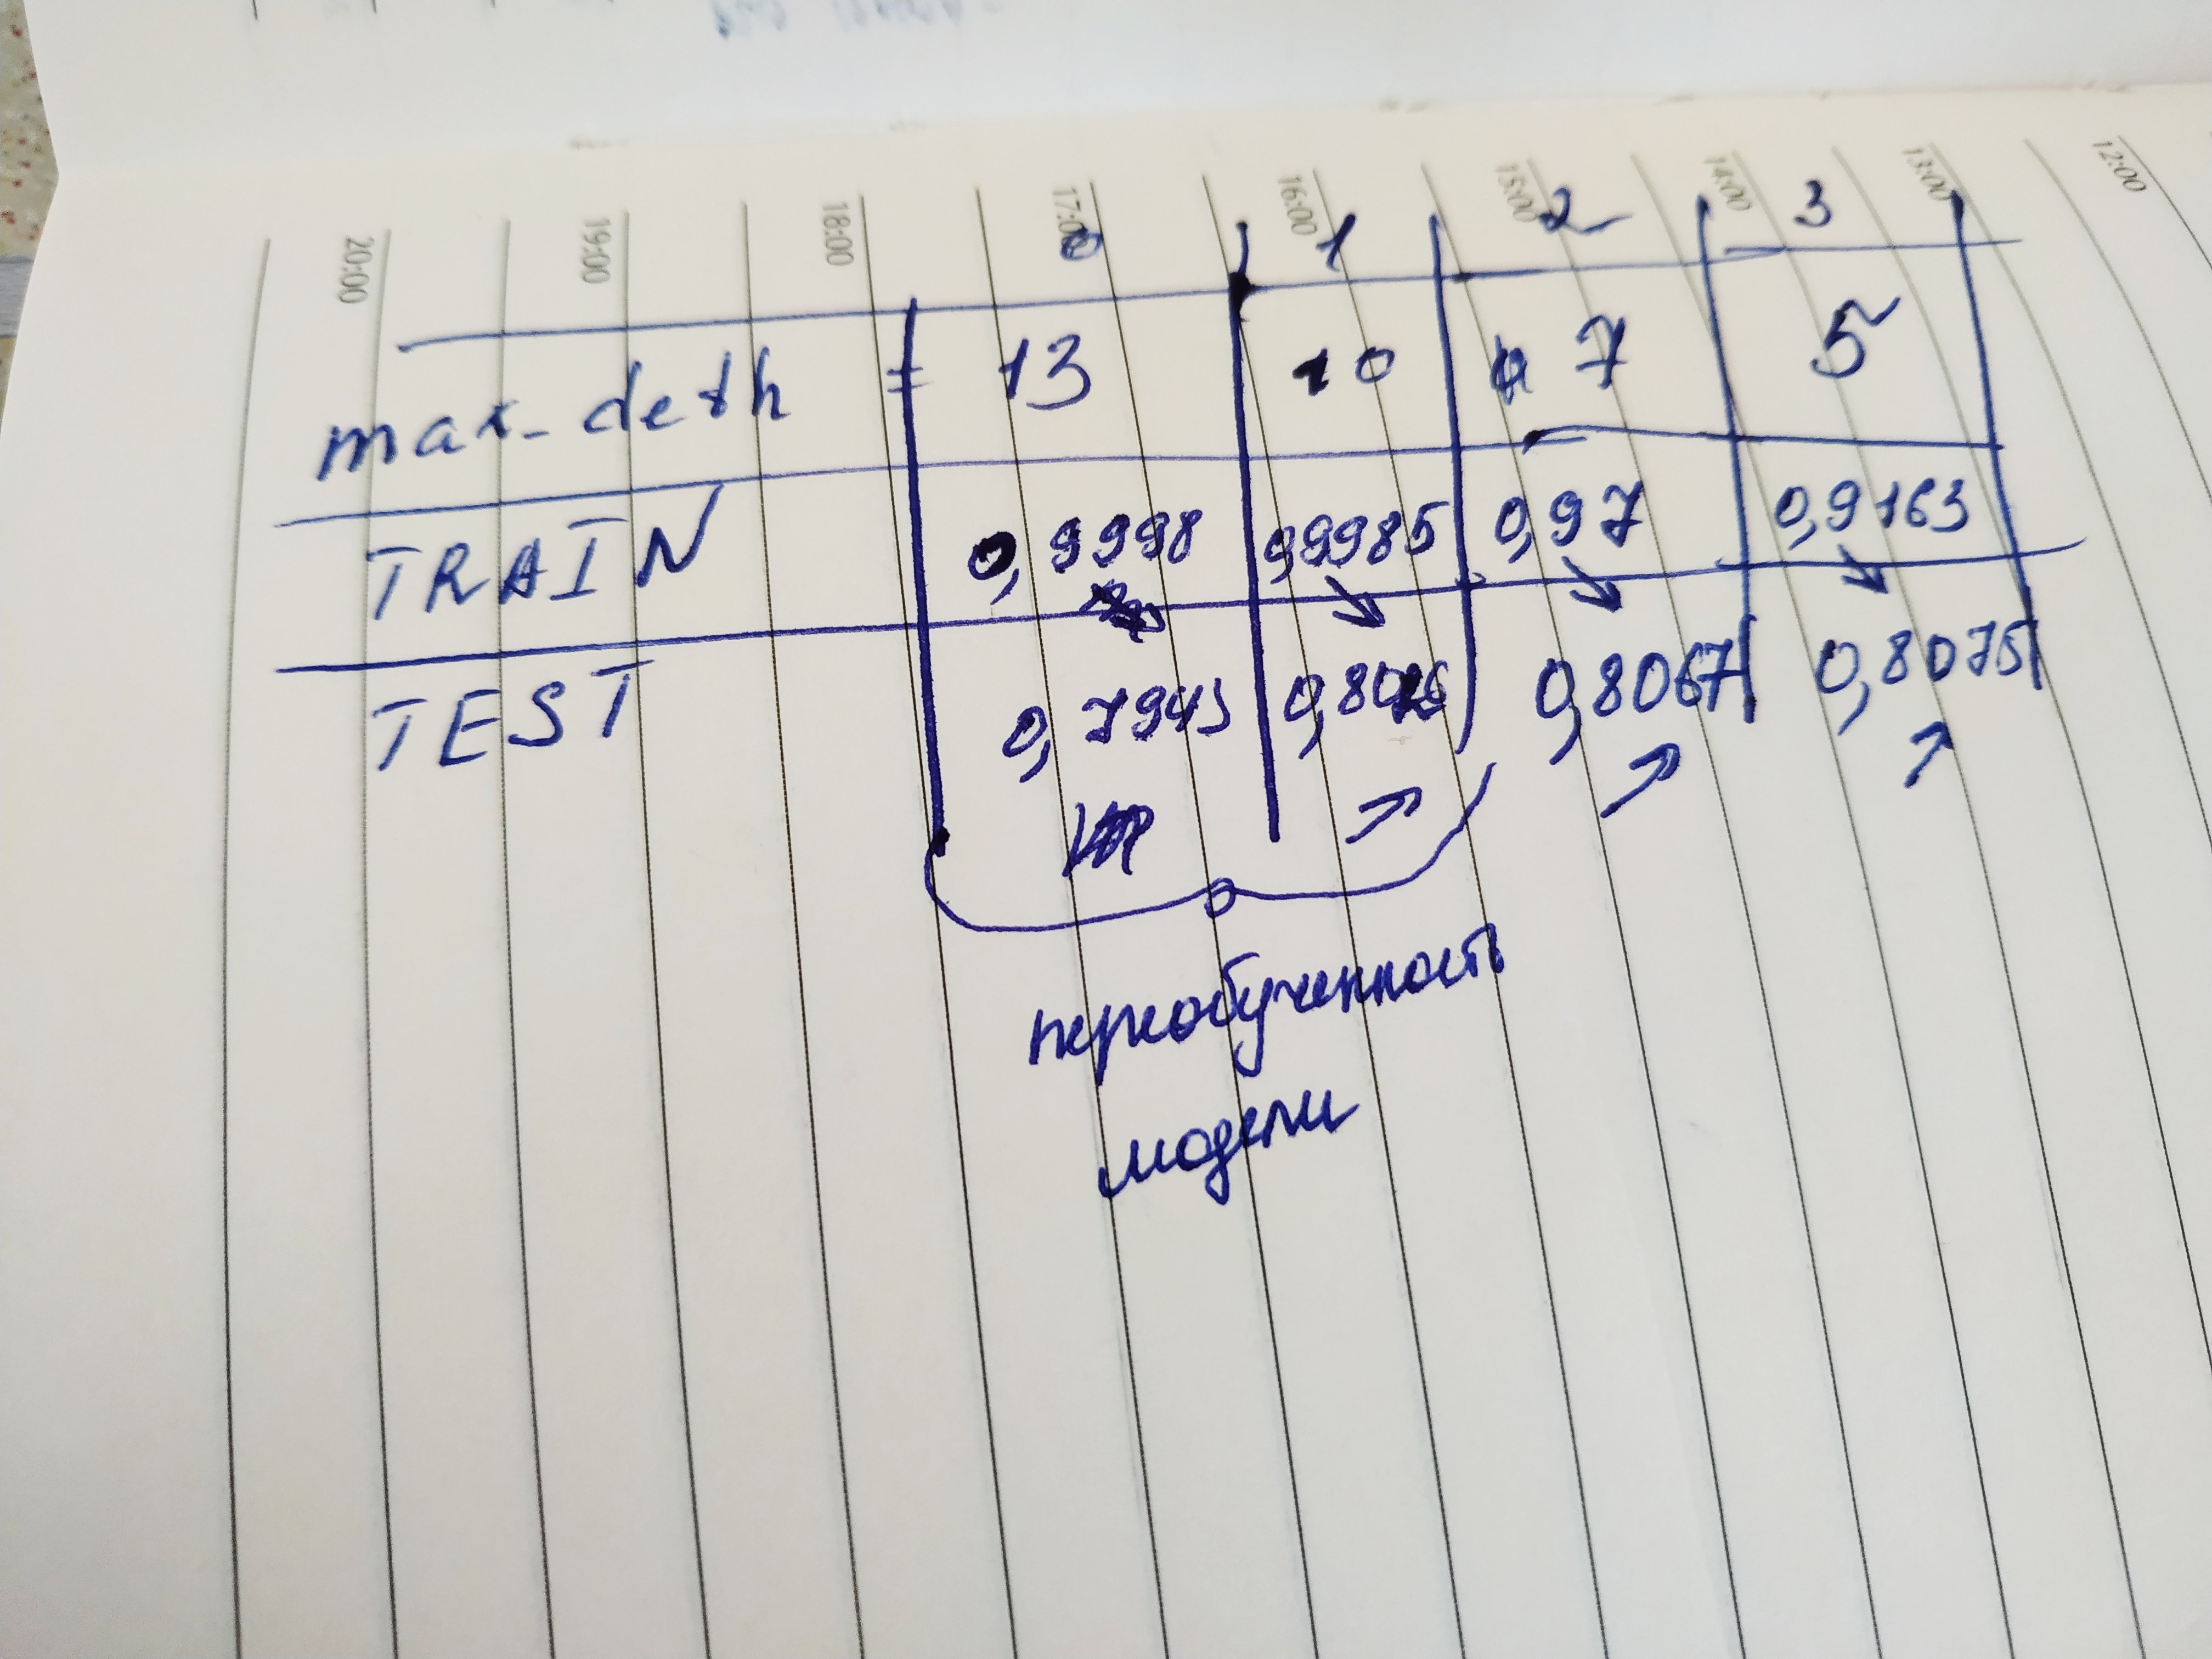 20:00 19:00 18:00 17:00 16:00 15:00 14:00 13:00 12:00
0 1 2 3
max_deth = 13 10 7 5
TRAIN 0,9998 0,9985 0,97 0,9163
TEST 0,7943 0,8026 0,8067 0,8075
переобученность
модели